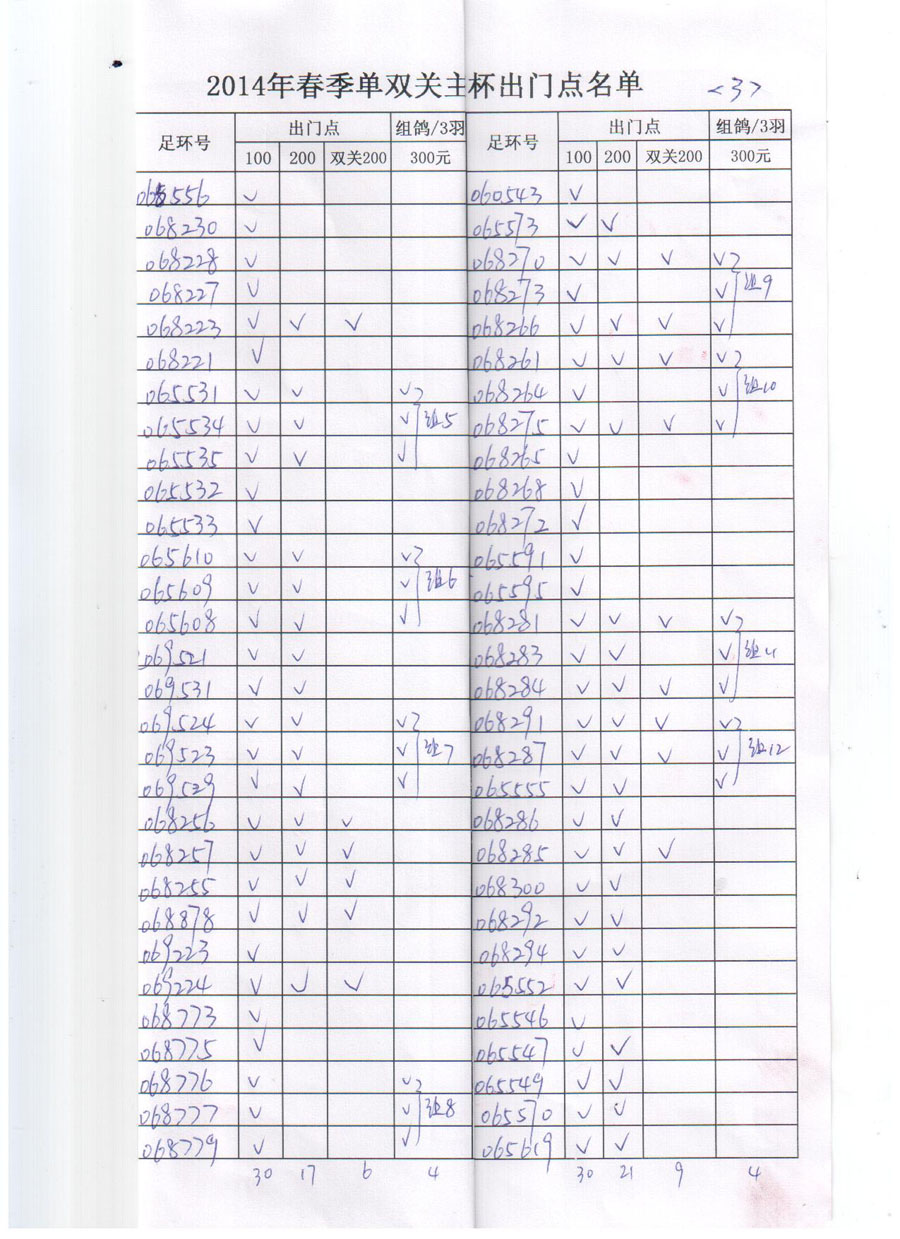 2014年春季单双关主杯出门点名单 <3>
足环号 出门点 组鸽/3羽 足环号 出门点 组鸽/3羽
100 200 双关200 300元 100 200 双关200 300元
065556 ✓ 060543 ✓
068230 ✓ 065573 ✓ ✓
068228 ✓ 068270 ✓ ✓ ✓ ✓
068227 ✓ 068273 ✓ ✓ 组9
068223 ✓ ✓ ✓ 068266 ✓ ✓ ✓ ✓
068221 ✓ 068261 ✓ ✓ ✓ ✓
065531 ✓ ✓ ✓ 068264 ✓ ✓ 组10
065534 ✓ ✓ ✓ 组5 068275 ✓ ✓ ✓ ✓
065535 ✓ ✓ ✓ 068265 ✓
065532 ✓ 068268 ✓
065533 ✓ 068272 ✓
065610 ✓ ✓ ✓ 065591 ✓
065609 ✓ ✓ ✓ 组6 065595 ✓
065608 ✓ ✓ ✓ 068281 ✓ ✓ ✓ ✓
069521 ✓ ✓ 068283 ✓ ✓ ✓ 组11
069531 ✓ ✓ 068284 ✓ ✓ ✓ ✓
069524 ✓ ✓ ✓ 068291 ✓ ✓ ✓ ✓
069523 ✓ ✓ ✓ 组7 068287 ✓ ✓ ✓ ✓ 组12
069529 ✓ ✓ ✓ 065555 ✓ ✓ ✓
068256 ✓ ✓ ✓ 068286 ✓ ✓
068257 ✓ ✓ ✓ 068285 ✓ ✓ ✓
068255 ✓ ✓ ✓ 068300 ✓ ✓
068878 ✓ ✓ ✓ 068292 ✓ ✓
069223 ✓ 068294 ✓ ✓
069224 ✓ ✓ ✓ 065552 ✓ ✓
068773 ✓ 065546 ✓
068775 ✓ 065547 ✓ ✓
068776 ✓ ✓ 065549 ✓ ✓
068777 ✓ ✓ 组8 065570 ✓ ✓
068779 ✓ ✓ 065619 ✓ ✓
30 17 6 4 30 21 9 4